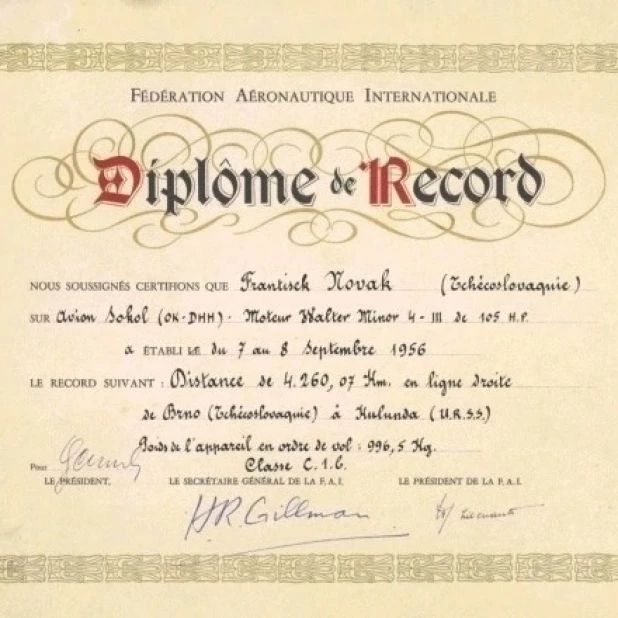 FÉDÉRATION AÉRONAUTIQUE INTERNATIONALE
Diplôme de Record
NOUS SOUSSIGNÉS CERTIFIONS QUE Frantisek Novak (Tchécoslovaquie)
SUR Avion Sokol (OK-DHH). Moteur Walter Minor 4-III de 105 H.P.
A ÉTABLI LE du 7 au 8 Septembre 1956
LE RECORD SUIVANT : Distance de 4.260,07 Km. en ligne droite
de Brno (Tchécoslovaquie) à Kulunda (U.R.S.S.)
Poids de l'appareil en ordre de vol : 996,5 Kg.
Pour Classe C.1.C.
LE PRÉSIDENT, LE SECRÉTAIRE GÉNÉRAL DE LA F.A.I. LE PRÉSIDENT DE LA F.A.I.
H.R. Gillman